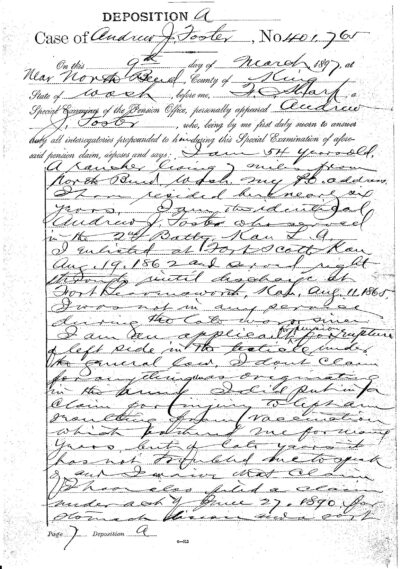 DEPOSITION A
Case of Andrew J. Foster, No 401,765
On this 9th day of March 1897, at
Near North Bend, County of King
State of Wash, before me, F. Sharp, a
Special Examiner of the Pension Office, personally appeared Andrew
J. Foster, who, being by me first duly sworn to answer
truly all interrogatories propounded to him during this Special Examination of afore-
said pension claim, deposes and says: I am 54 years old,
A rancher living 7 miles from
North Bend Wash, my P.O. address.
I have resided here near six
years. I am the identical
Andrew J. Foster who served
in the 2nd Batty. Kan L.A.
I enlisted at Fort Scott Kan
Aug. 19, 1862 and served right
through until discharge at
Fort Leavenworth, Kan, Aug. 11, 1865.
I was not in any service
during the late war since
I am an applicant for pension for rupture
of left side in the testicle under
the general law. I don't claim
for anything as originating
in the army. I did put in a
claim for injury to left arm
resulting from vaccination
which bothered me for many
years, but of late years it
has not troubled me to speak
of and I waive that claim
I have also filed a claim
under act of June 27, 1890, for
stomach disease and a sort
Page 7 Deposition A